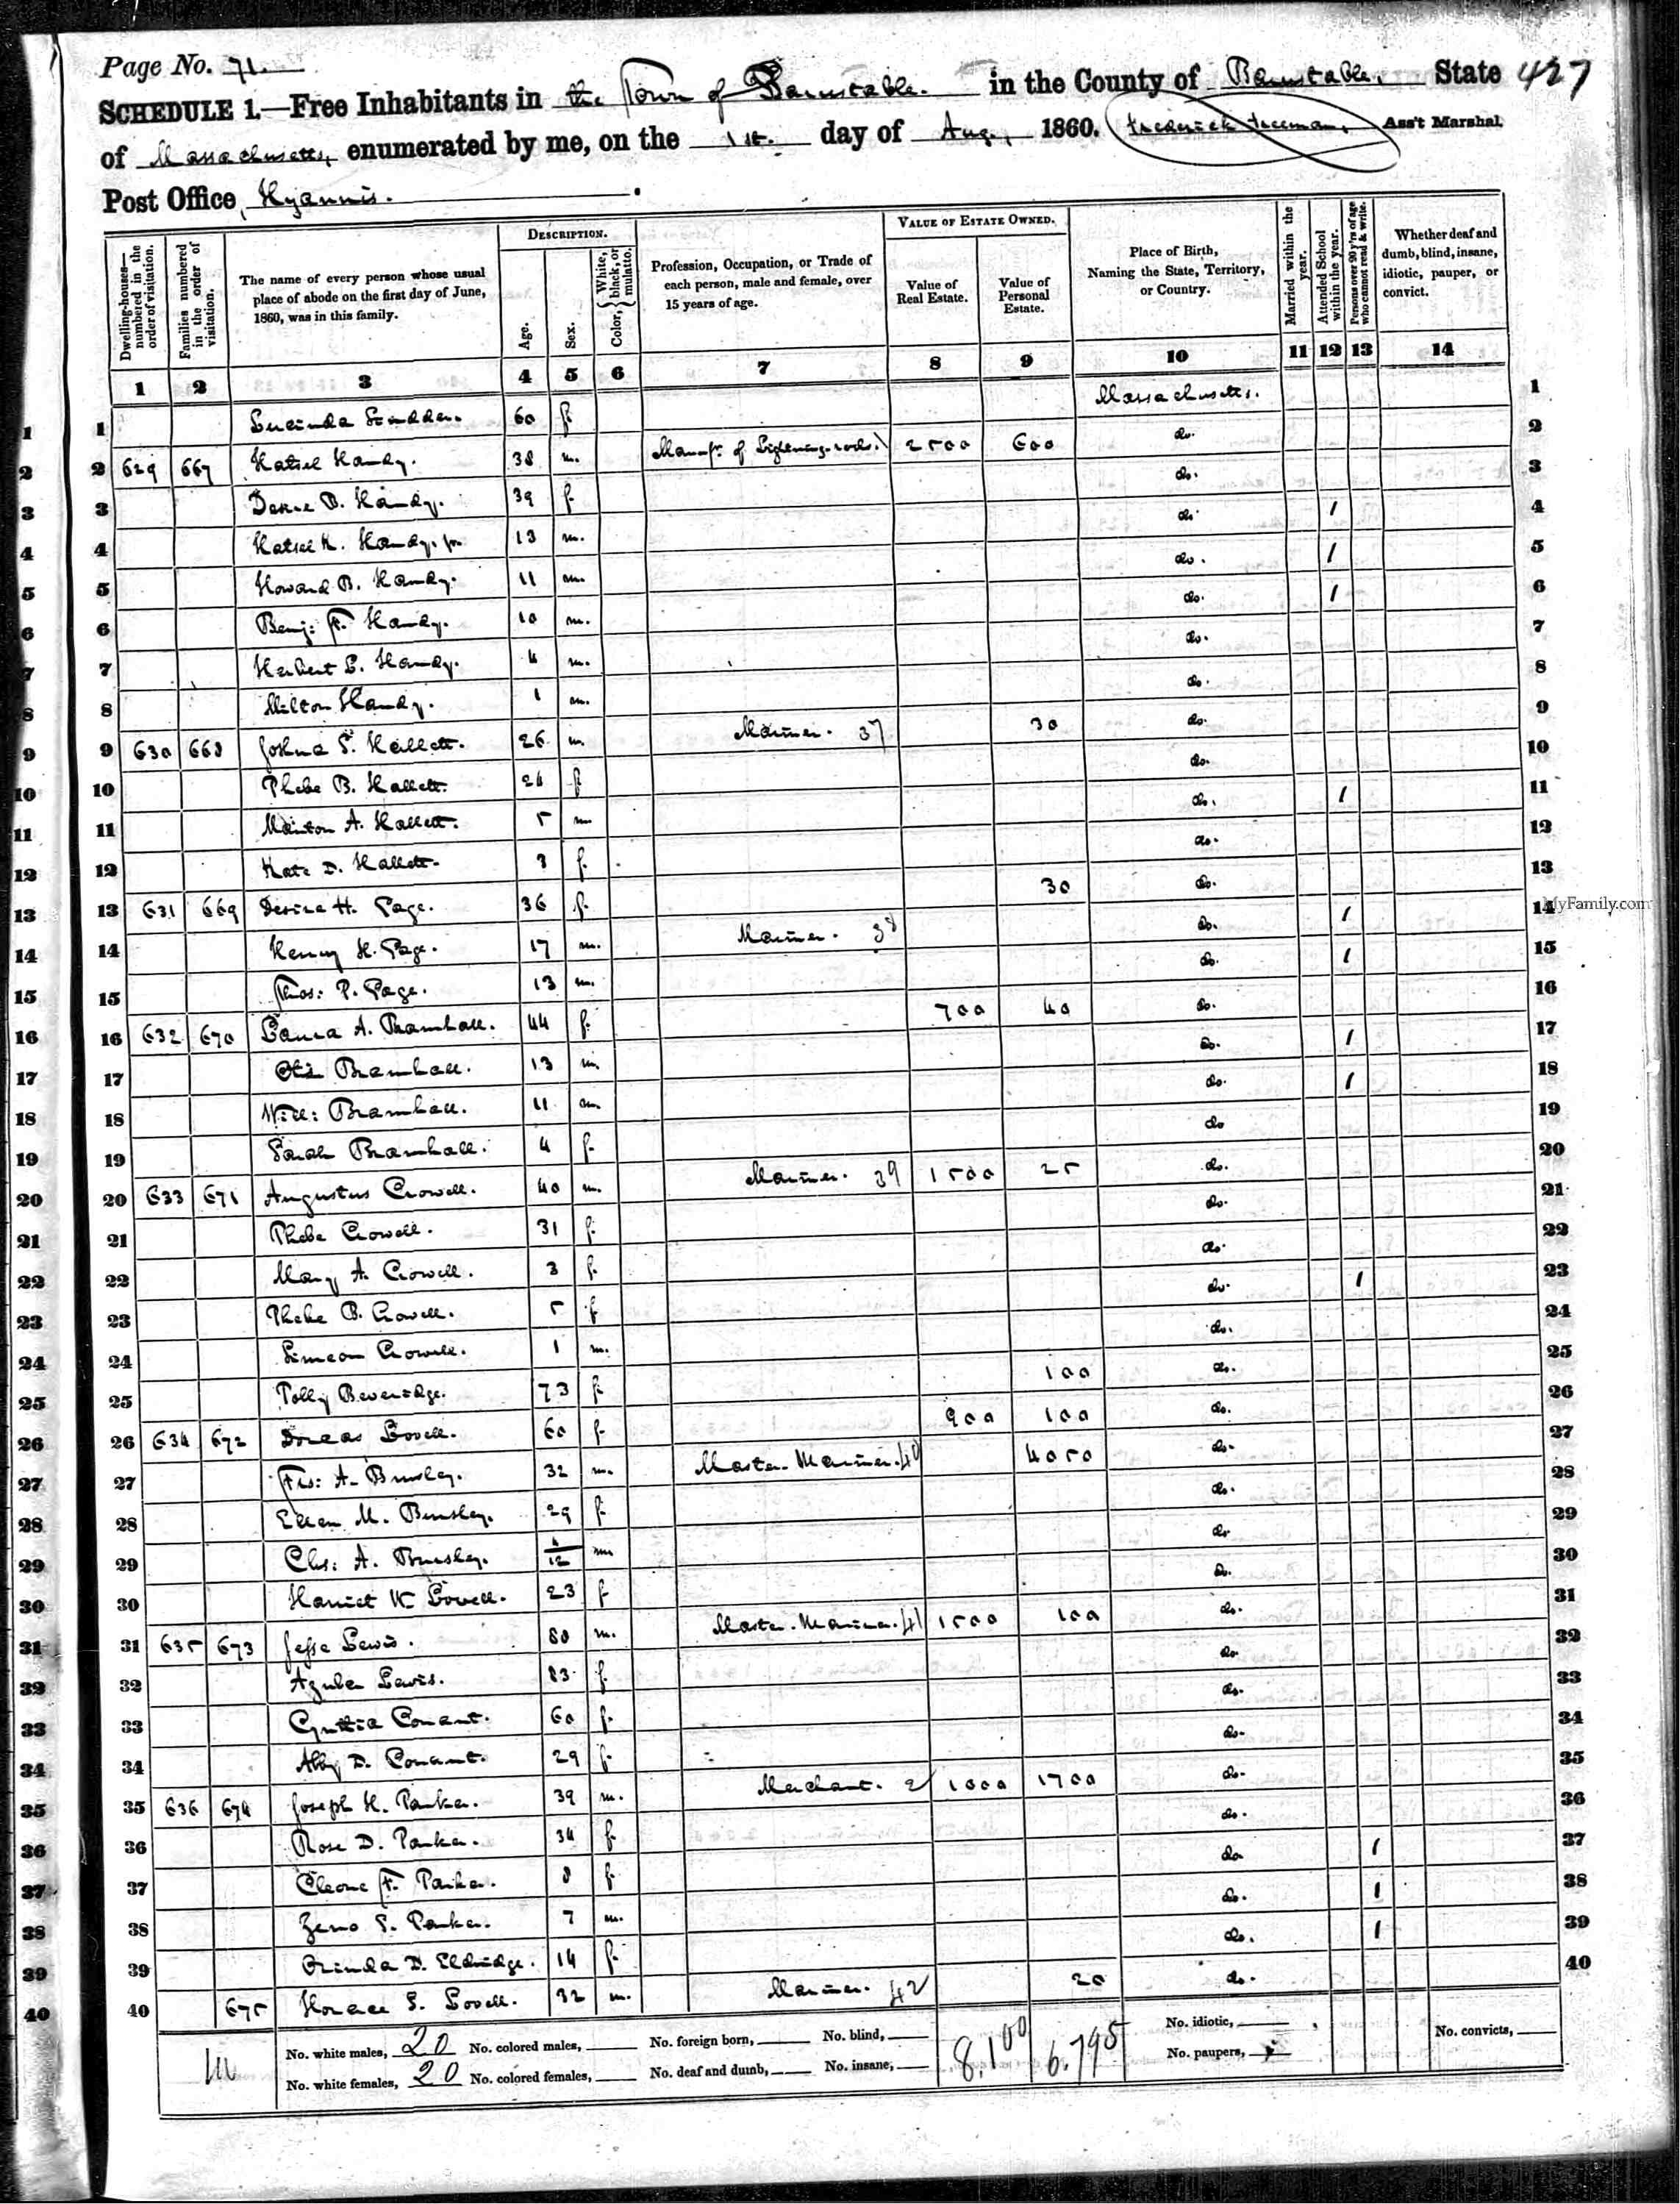 Page No. 71.
SCHEDULE 1.—Free Inhabitants in the Town of Barnstable. in the County of Barnstable, State 427
of Massachusetts, enumerated by me, on the 1st. day of Aug., 1860. Frederick Freeman, Ass't Marshal.
Post Office, Hyannis.
Dwelling-houses—numbered in the order of visitation.
Families numbered in the order of visitation.
The name of every person whose usual place of abode on the first day of June, 1860, was in this family.
DESCRIPTION.
Age.
Sex.
Color, { White, black, or mulatto.
Profession, Occupation, or Trade of each person, male and female, over 15 years of age.
VALUE OF ESTATE OWNED.
Value of Real Estate.
Value of Personal Estate.
Place of Birth, Naming the State, Territory, or Country.
Married within the year.
Attended School within the year.
Persons over 20 y'rs of age who cannot read & write.
Whether deaf and dumb, blind, insane, idiotic, pauper, or convict.
1 2 3 4 5 6 7 8 9 10 11 12 13 14
1 1 Lucinda 60 f. Massachusetts. 1
2 2 629 667 Hatsel Handy. 38 m. Manufr. of Lightning-rods. 2500 600 do. 2
3 3 D. Handy. 39 f do. 3
4 4 Hatsel K. Handy. jr. 13 m. do. 1 4
5 5 Howard B. Handy. 11 m. do. 1 5
6 6 Benj: F. Handy. 10 m. do. 1 6
7 7 Herbert L. Handy. 4 m. do. 7
8 8 Milton Handy. 1 m. do. 8
9 9 630 668 Joshua S. Hallett. 26 m. Mariner. 37 30 do. 9
10 10 Phebe B. Hallett. 24 f do. 10
11 11 A. Hallett. 5 m do. 1 11
12 12 Kate D. Hallett. 3 f. do. 12
13 13 631 669 Desire H. Page. 36 f. 30 do. 13
14 14 Henry H. Page. 17 m. Mariner. 38 do. 1 14
15 15 Thos: P. Page. 13 m. do. 1 15
16 16 632 670 Laura A. Bramhall. 44 f. 700 40 do. 16
17 17 Otis Bramhall. 13 m. do. 1 17
18 18 Will: Bramhall. 11 m. do. 1 18
19 19 Sarah Bramhall. 4 f. do 19
20 20 633 671 Augustus Crowell. 40 m. Mariner. 39 1500 25 do. 20
21 21 Phebe Crowell. 31 f. do. 21
22 22 Mary A. Crowell. 3 f. do. 22
23 23 Phebe B. Crowell. 5 f do. 1 23
24 24 Simeon Crowell. 1 m. do. 24
25 25 Polly Beveridge. 73 f. 100 do. 25
26 26 634 672 Dorcas Lovell. 60 f. 900 100 do. 26
27 27 A. Bursley. 32 m. Master-Mariner. 40 4050 do. 27
28 28 Ellen M. Bursley. 29 f. do. 28
29 29 Chs: A. Bursley. 4/12 m do 29
30 30 Harriet K Lovell. 23 f do. 30
31 31 635 673 Jesse Lewis. 80 m. Master-Mariner. 41 1500 100 do. 31
32 32 Azuba Lewis. 83 f do. 32
33 33 Cynthia Conant. 60 f. do. 33
34 34 Abby D. Conant. 29 f. do. 34
35 35 636 674 Joseph H. Parker. 39 m. Merchant. 2 1000 1700 do. 35
36 36 Rose D. Parker. 34 f. do. 36
37 37 Cleone F. Parker. 8 f. do 1 37
38 38 Zeno S. Parker. 7 m. do. 1 38
39 39 Orinda D. Eldridge. 14 f. do. 1 39
40 40 675 Horace S. Lovell. 32 m. Mariner. 42 20 do. 40
No. white males, 20 No. colored males, No. foreign born, No. blind, 8.100 6.795 No. idiotic, No. convicts,
No. white females, 20 No. colored females, No. deaf and dumb, No. insane, No. paupers,
MyFamily.com